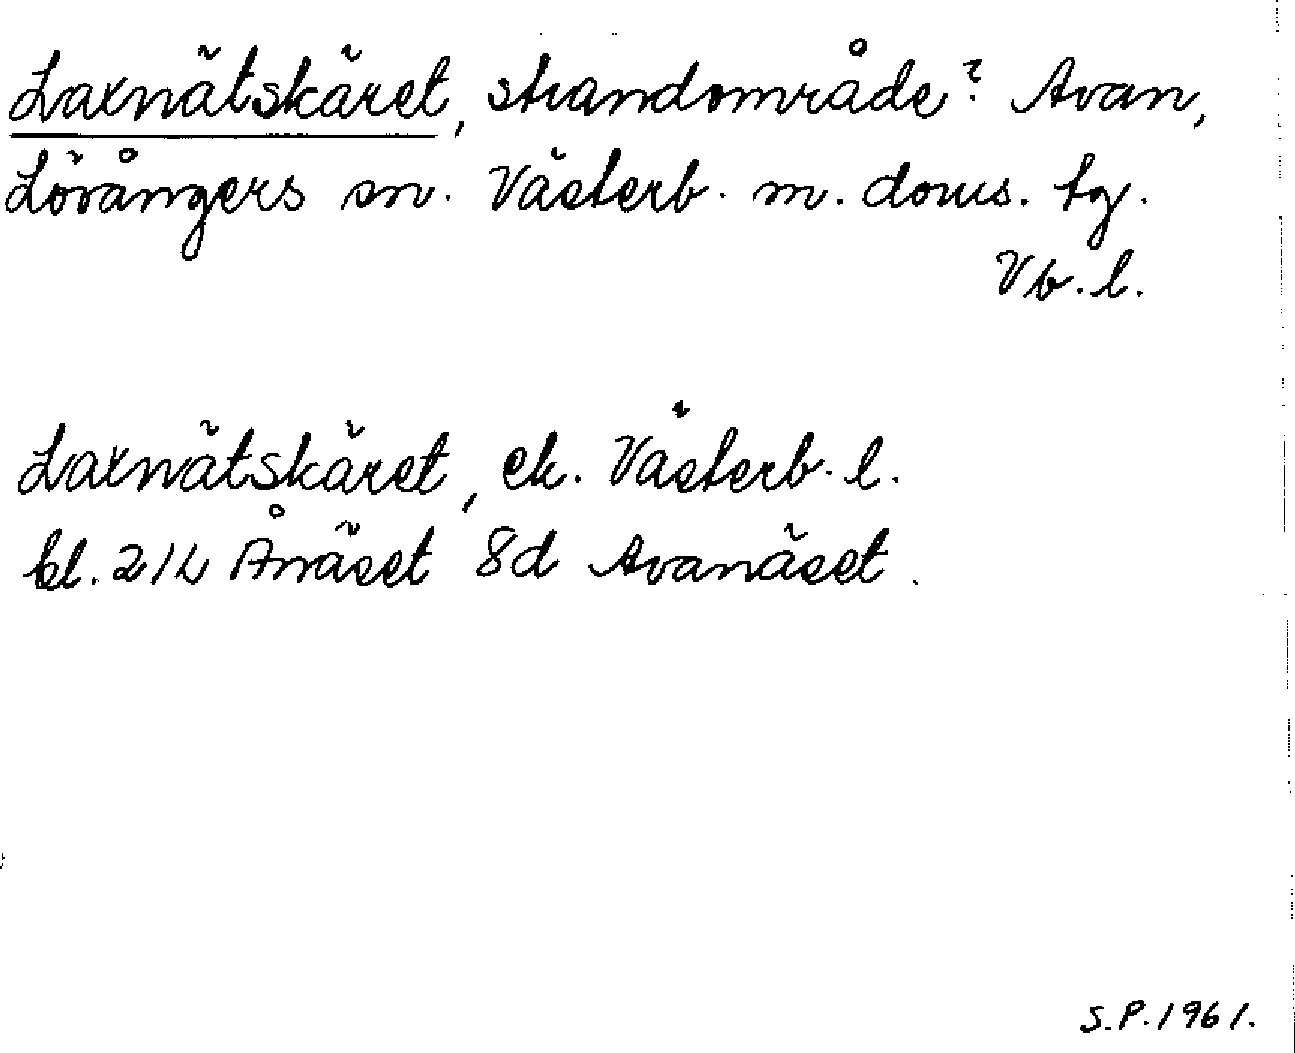 Laxnätskäret, strandområde? Avan,
Lövångers sn. Västerb. m. doms. tg.
Vb. l.
Laxnätskäret, ek. Västerb. l.
bl. 21L Ånäset 8d Avanäset.
S.P. 1961.